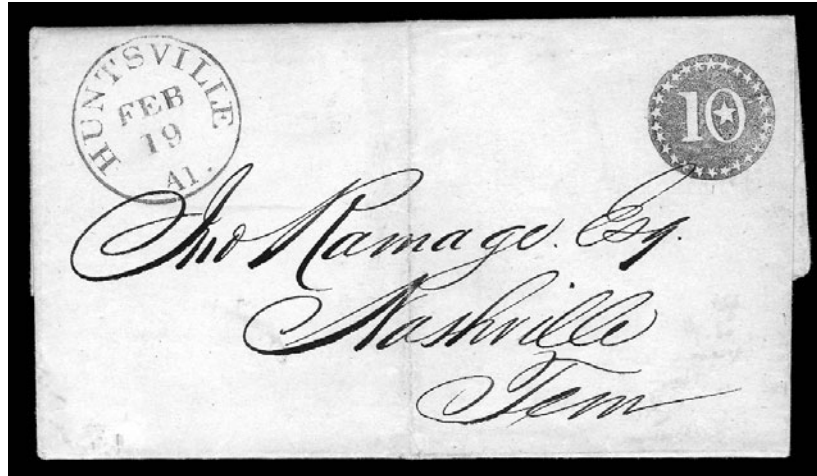 HUNTSVILLE
FEB
19
Al.
10
Jno Ramage. Esq.
Nashville
Tenn